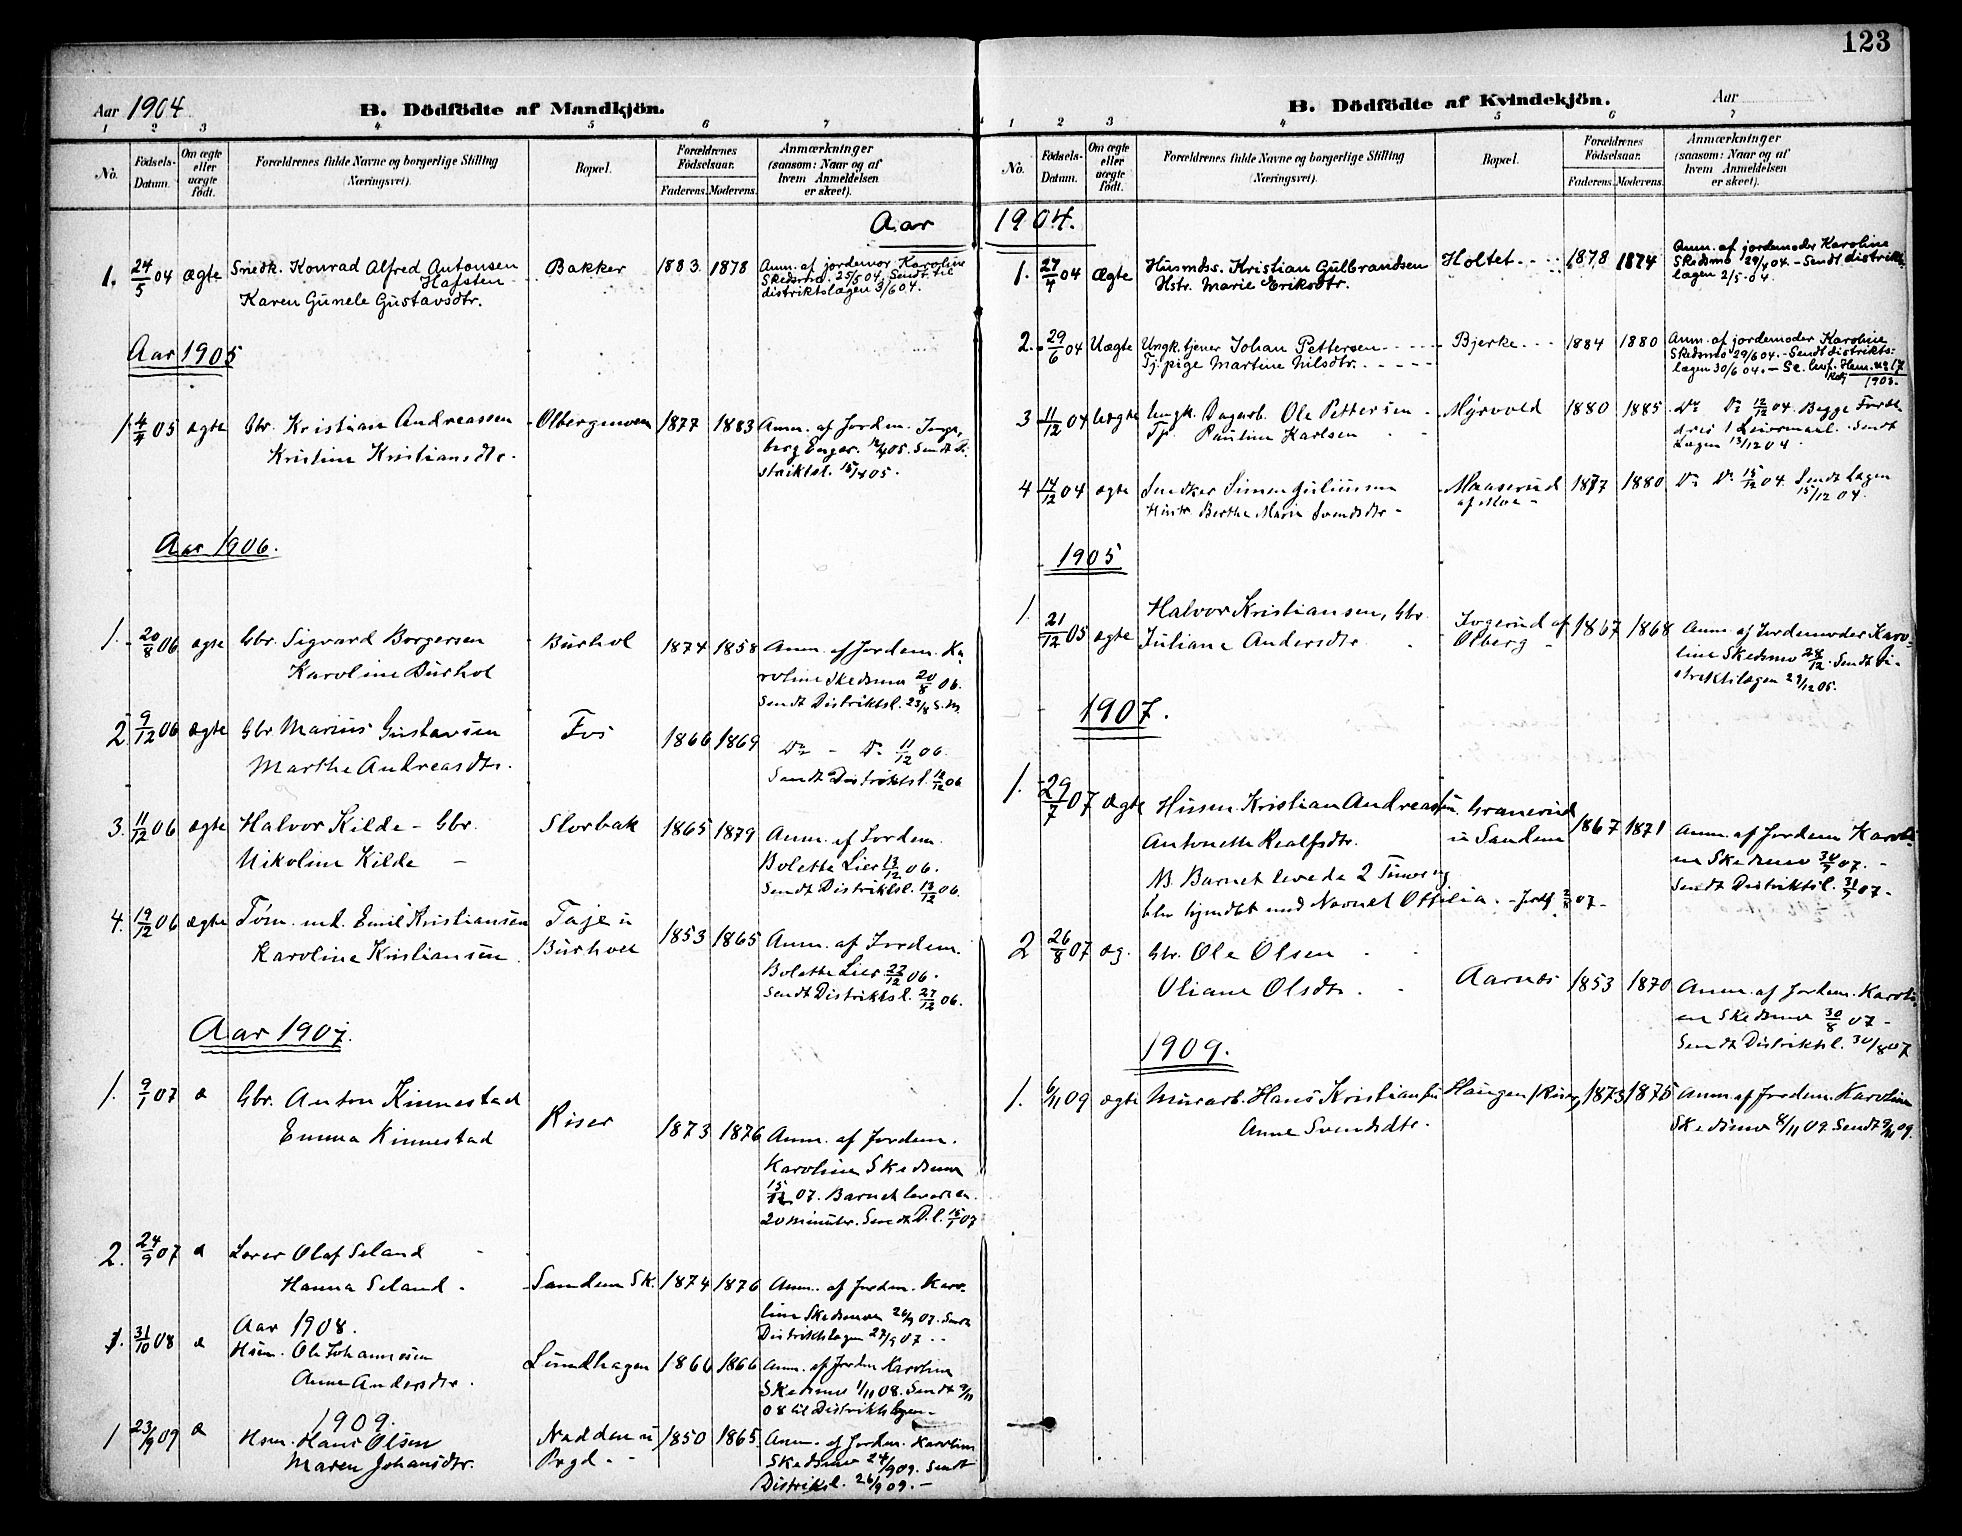 123
Aar 1904
B. Dödfödte af Mandkjön.
1 2 3 4 5 6 7
No.
Födsels-Datum.
Om ægte eller uægte födt.
Forældrenes fulde Navne og borgerlige Stilling (Næringsvei).
Bopæl.
Forældrenes Fødselsaar.
Faderens. Moderens.
Anmærkninger (saasom: Naar og af hvem Anmeldelsen er skeet).
Aar
1. 24/5 04 ægte Snedk. Konrad Alfred Antonsen Hafsten Bakker 1883 1878 Anm. af jordemor Karoline
Karen Gunele Gustavsdtr. Skedsmo 25/5 04. Sendt til
distriktslægen 3/6 04.
Aar 1905
1 4/4 05 ægte Gbr. Kristian Andreassen Olbergmoen 1877 1883 Anm. af Jordem. Inge-
Kristine Kristiansdtr. berg Enger. 12/4 05. Sendt Di-
striktsl. 15/4 05.
Aar 1906.
1. 20/8 06 ægte Gbr. Sigvard Borgersen Burhol 1874 1858 Anm. af Jordem. Ka-
Karoline Burhol roline Skedsmo 20/8 06.
Sendt Distriktsl. 23/8 s.m.
2 9/12 06 ægte Gbr Marius Gustavsen Fos 1866 1869 Do - Do 11/12 06.
Marthe Andreasdtr. Sendt Distriktsl. 12/12 06
3. 11/12 06 ægte Halvor Kilde - Gbr. Storbak 1865 1879 Anm. af Jordem.
Nikoline Kilde - Bolette Lier 13/12 06.
Sendt Distriktsl. 13/12 06.
4. 19/12 06 ægte Tøm. Emil Kristiansen Taje u 1853 1865 Anm. af Jordem.
Karoline Kristiansen Burhol Bolette Lier 22/12 06.
Sendt Distriktsl. 27/12 06.
Aar 1907.
1. 9/1 07 æ Gbr. Anton Kinnestad Riser 1873 1876 Anm. af Jordem.
Emma Kinnestad Karoline Skedsmo
15/ 07. Barnet levet en.
20 minuter. Sendt D.l. 15/1 07
2. 24/9 07 æ Lærer Olaf Seland
Hanna Seland. Sanden Sk. 1874 1876 Anm. af Jordem. Karo-
line Skedsmo 26/9 07. Sendt
Distriktslægen 27/9 07
Aar 1908.
1. 31/10 08 æ Husm. Ole Johannesen Lundhagen 1866 1866 Anm. af Jordem Karoline
Anne Andersdtr. Skedsmo 1/11 08. Sendt 9/11
08 til Distriktslægen.
1909.
1 23/9 09 æ Hsm. Hans Olsen Nadden u 1850 1865 Anm. af Jordem. Karoline
Maren Johansdtr. Prgd. Skedsmo 24/9 09. Sendt
Distriktsl. 26/9 09.
B. Dödfödte af Kvindekjön.
Aar
1 2 3 4 5 6 7
No.
Födsels-Datum.
Om ægte eller uægte födt.
Forældrenes fulde Navne og borgerlige Stilling (Næringsvei).
Bopæl.
Forældrenes Fødselsaar.
Faderens. Moderens.
Anmærkninger (saasom: Naar og af hvem Anmeldelsen er skeet).
1904.
1. 27/4 04 Ægte Husmds. Kristian Gulbrandsen Holtet 1878 1874 Anm. af jordemoder Karoline
Hstr. Marie Eriksdtr. Skedsmo 29/4 04. - Sendt distrikts-
lægen 2/5-04.
2. 29/6 04 Uægte Ungk. tjener Johan Pettersen Bjerke 1884 1880 Anm. af jordemoder Karoline
Tj. pige Martine Nilsdtr. Skedsmo 29/6 04. - Sendt distrikts-
lægen 30/6 04. - Se konf. Hem. no 17
1903.
3 11/12 04 Uægte Ungk. Dagarb. Ole Pettersen Myrvold 1880 1885 Do Do 12/12 04. Begge Foræl
Tj. Pauline Karlsen dres 1 Leiermaal. Sendt
Lægen 13/12 04.
4 14/12 04 ægte Snedker Simen Juliussen Maaserud 1877 1880 Do Do 15/12 04. Sendt Lægen
Hustr. Berthe Marie Svendsdtr af Moe 15/12 04.
1905
1. 21/12 05 ægte Halvor Kristiansen, Gbr. Ingerud af 1867 1868 Anm. af Jordemoder Karo-
Juliane Andersdtr. Olberg line Skedsmo 28/12. Sendt Di-
striktslægen 29/12 05.
1907.
1. 29/7 07 ægte Husm. Kristian Andreassen Granerud 1867 1871 Anm. af Jordem Karoli-
Antonette Realfsdtr. u Sanden ne Skedsmo 30/7 07.
NB. Barnet levede 2 Timer og Sendt Distriktsl. 31/7 07.
blev hjemdøbt med Navnet Ottilia.
2 26/8 07 æg. Gbr. Ole Olsen
Oliane Olsdtr. Aarnes 1853 1870 Anm. af Jordem. Karoli-
ne Skedsmo 30/8 07
Sendt Distriktsl. 30/8 07
1909.
1. 6/11 09 ægte Murarb. Hans Kristiansen Haugen 1873 1875 Anm. af Jordem. Karoline
Anne Svendsdtr. Skedsmo 8/11 09. Sendt 9/11 09.